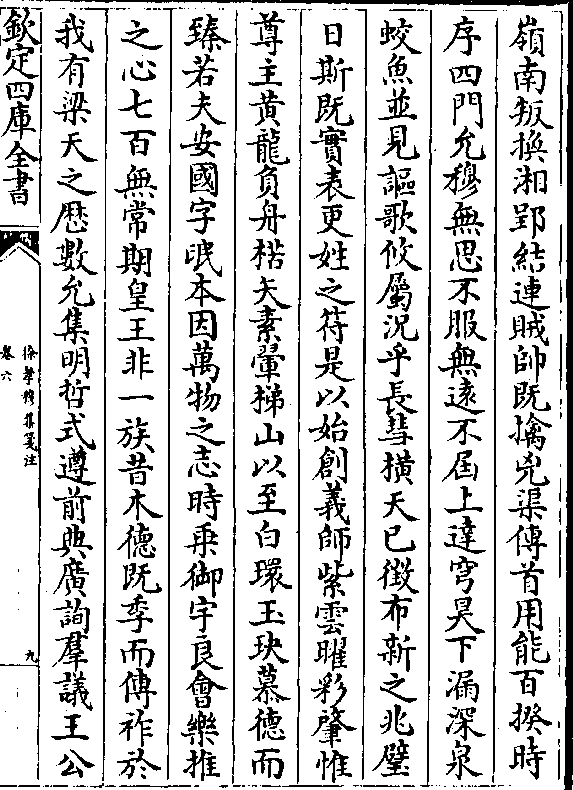 嶺南叛換湘郢結連賊帥既擒兇渠傳首用能百揆時
序四門允穆無思不服無遠不屆上達穹昊下漏深泉
蛟魚並見謳歌攸屬況乎長彗橫天已徵布新之兆璧
日斯既實表更姓之符是以始創義師紫雲曜彩肇惟
尊主黃龍負舟楛矢素翬梯山以至白環玉玦慕德而
臻若夫安國字甿本因萬物之志時乘御宇良會樂推
之心七百無常期皇王非一族昔木德既季而傳祚於
我有梁天之厯數允集明哲式遵前典廣詢羣議王公
欽定四庫全書
徐孝穆集箋注
卷六
九